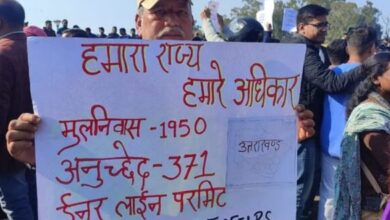 हमारा राज्य
हमारे अधिकार
मुलनिवास - 1950
उत्तराखण्ड
अनुच्छेद - 371
ईनर लाईन परमिट